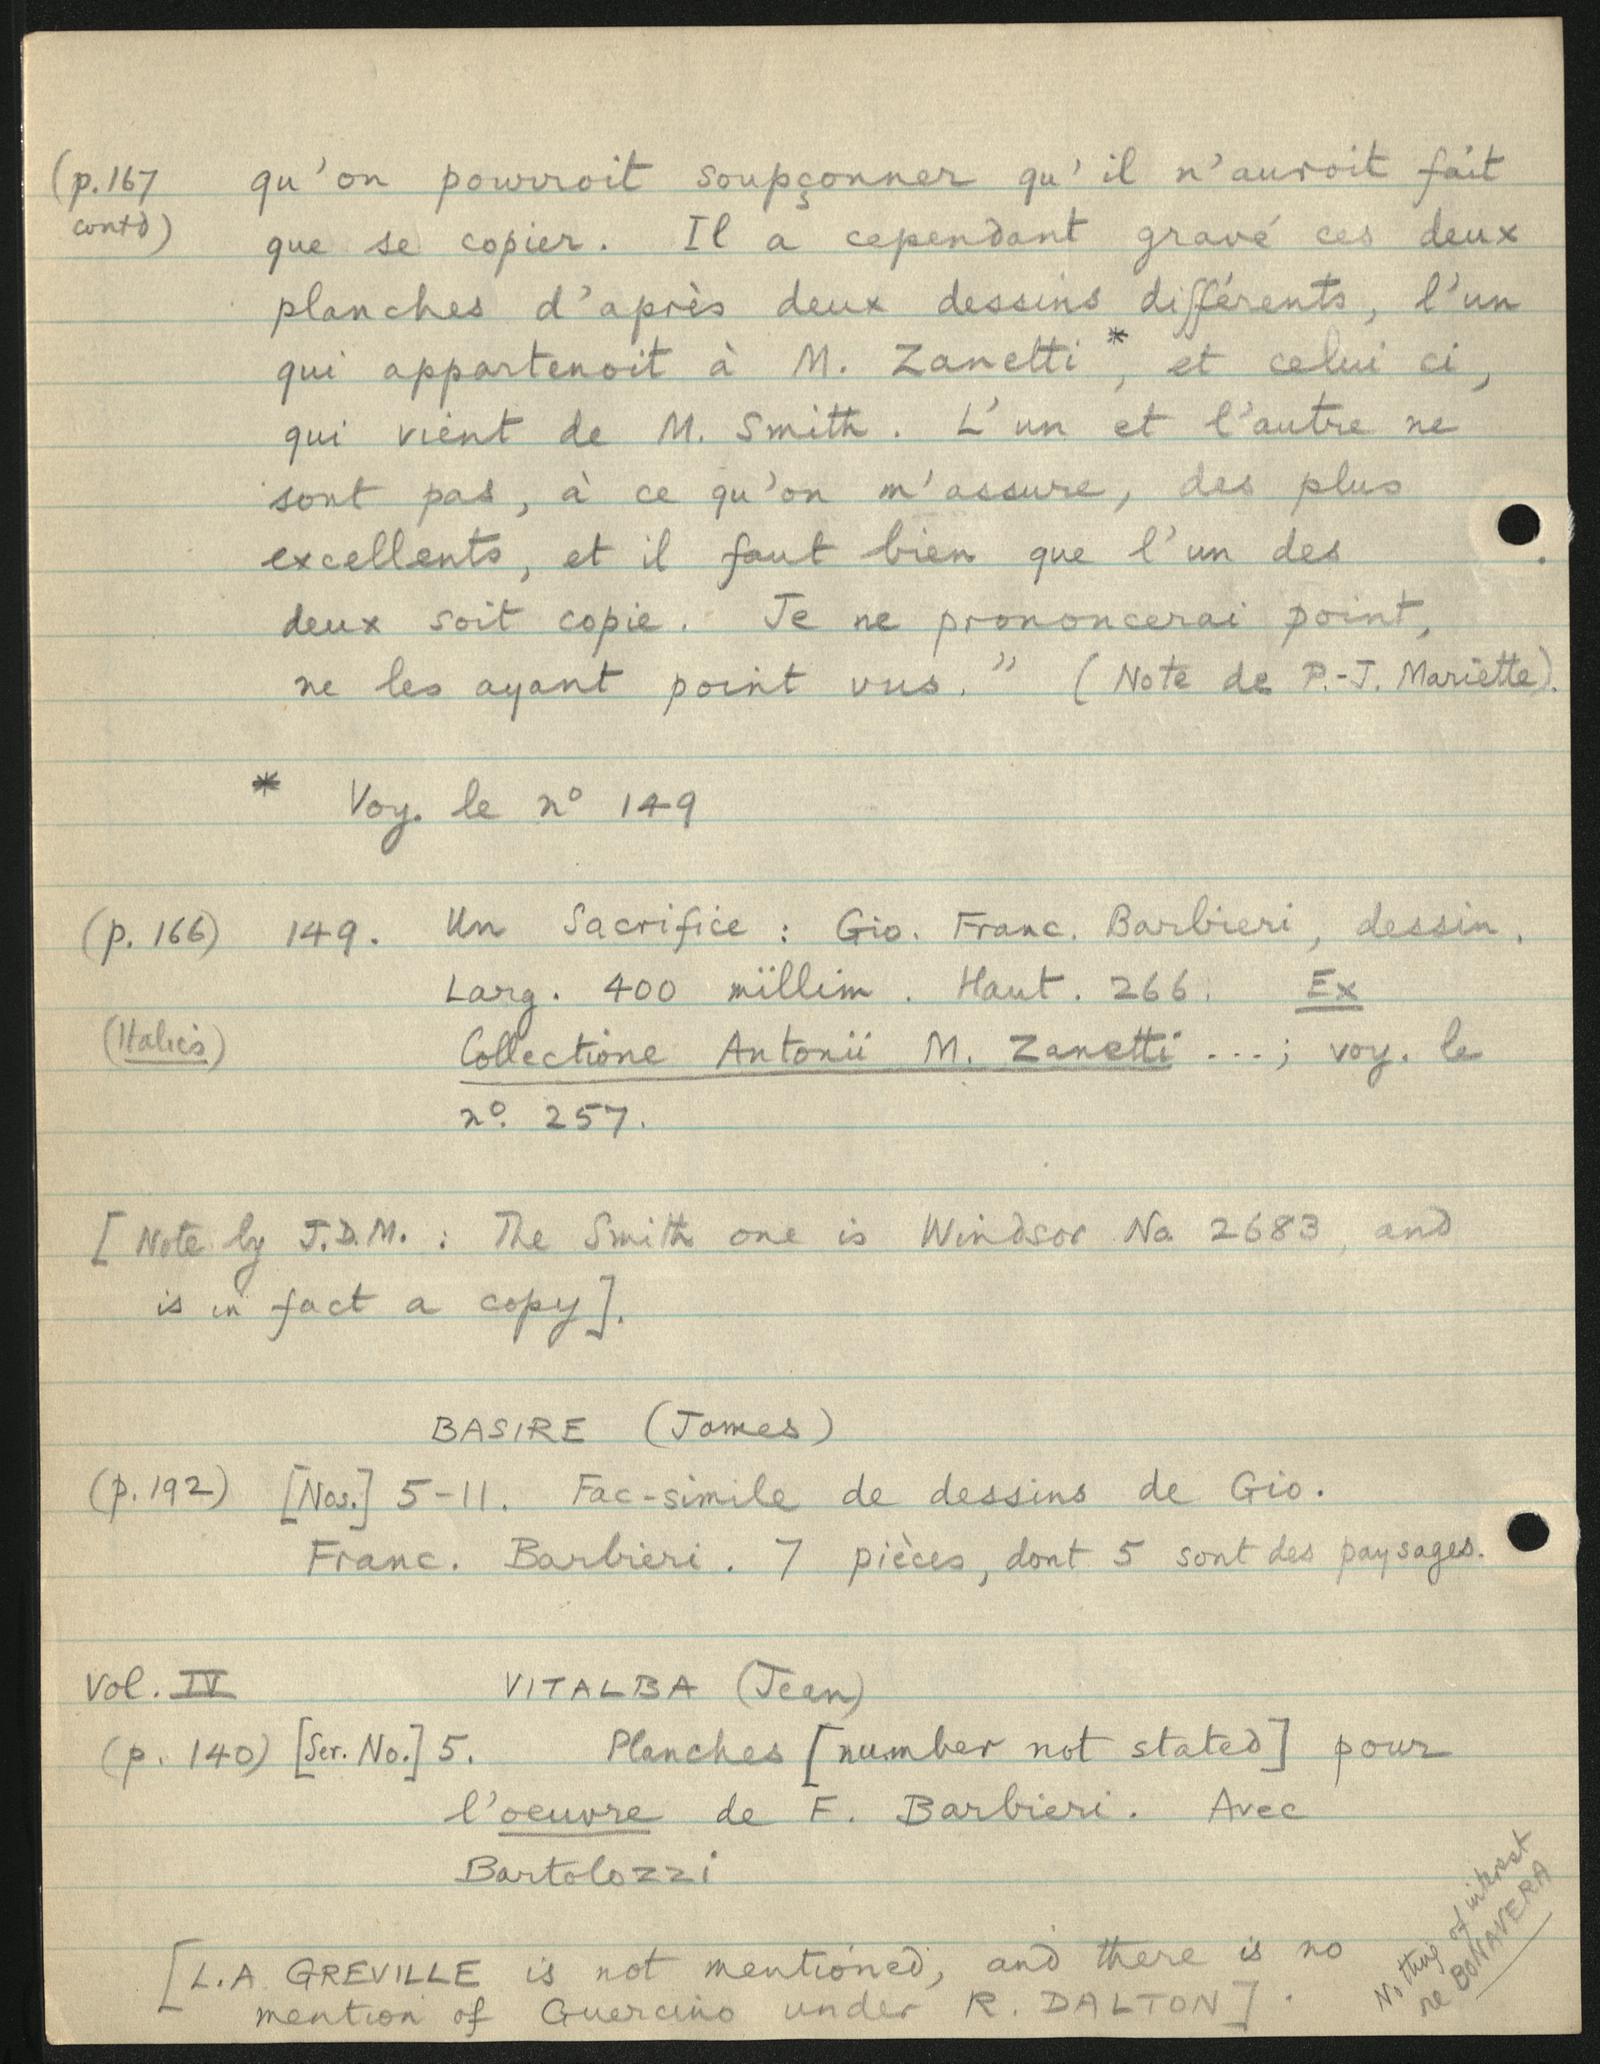 (p.167 qu'on pourroit soupçonner qu'il n'auroit fait
contd) que se copier. Il a cependant gravé ces deux
planches d'après deux dessins différents, l'un
qui appartenoit à M. Zanetti*, et celui ci,
qui vient de M. Smith. L'un et l'autre ne
sont pas, à ce qu'on m'assure, des plus
excellents, et il faut bien que l'un des
deux soit copie. Je ne prononcerai point,
ne les ayant point vus." (Note de P.-J. Mariette).
* Voy. le nº 149
(p. 166) 149. Un Sacrifice : Gio. Franc. Barbieri, dessin.
Larg. 400 millim. Haut. 266. Ex
(Italics) Collectione Antonii M. Zanetti ...; voy. le
nº. 257.
[Note by J.D.M. : The Smith one is Windsor No. 2683, and
is in fact a copy].
BASIRE (James)
(p.192) [Nos.] 5-11. Fac-simile de dessins de Gio.
Franc. Barbieri. 7 pièces, dont 5 sont des paysages.
Vol. IV VITALBA (Jean)
(p. 140) [Ser. No.] 5. Planches [number not stated] pour
l'oeuvre de F. Barbieri. Avec
Bartolozzi
[L.A. GREVILLE is not mentioned, and there is no
mention of Guercino under R. DALTON].
Nothing of interest
re BONAVERA